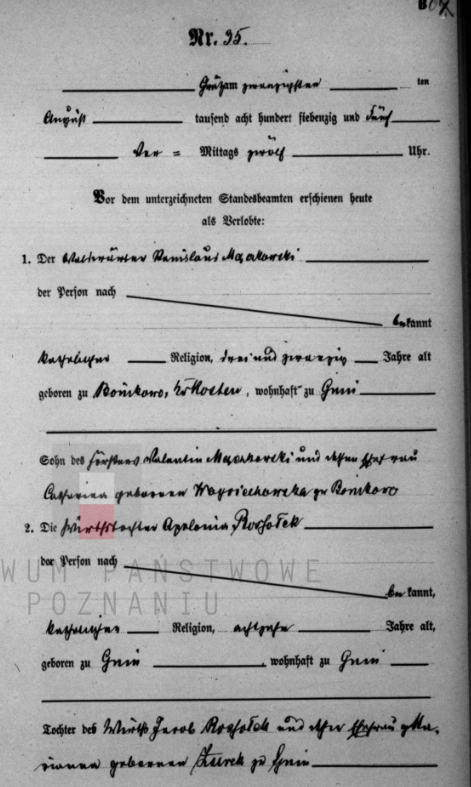 Nr. 35.
am zwanzigsten ten
August tausend acht hundert siebenzig und fünf
Vor = Mittags zwölf Uhr.
Vor dem unterzeichneten Standesbeamten erschienen heute
als Verlobte:
1. Der Stanislaus
der Person nach
bekannt
katholischer Religion, drei und zwanzig Jahre alt
geboren zu Bonikowo, Kr Kosten, wohnhaft zu
Sohn des Försters Valentin und dessen Ehefrau
Catharina geborenen Woyciechowska zu Bonikowo
2. Die Wirthstochter Apolonia
der Person nach
bekannt,
katholischer Religion, achtzehn Jahre alt,
geboren zu , wohnhaft zu
Tochter des Wirths Jacob und dessen Ehefrau Ma-
rianna geborenen Zurek zu
WUM PAŃSTWOWE
POZNANIU